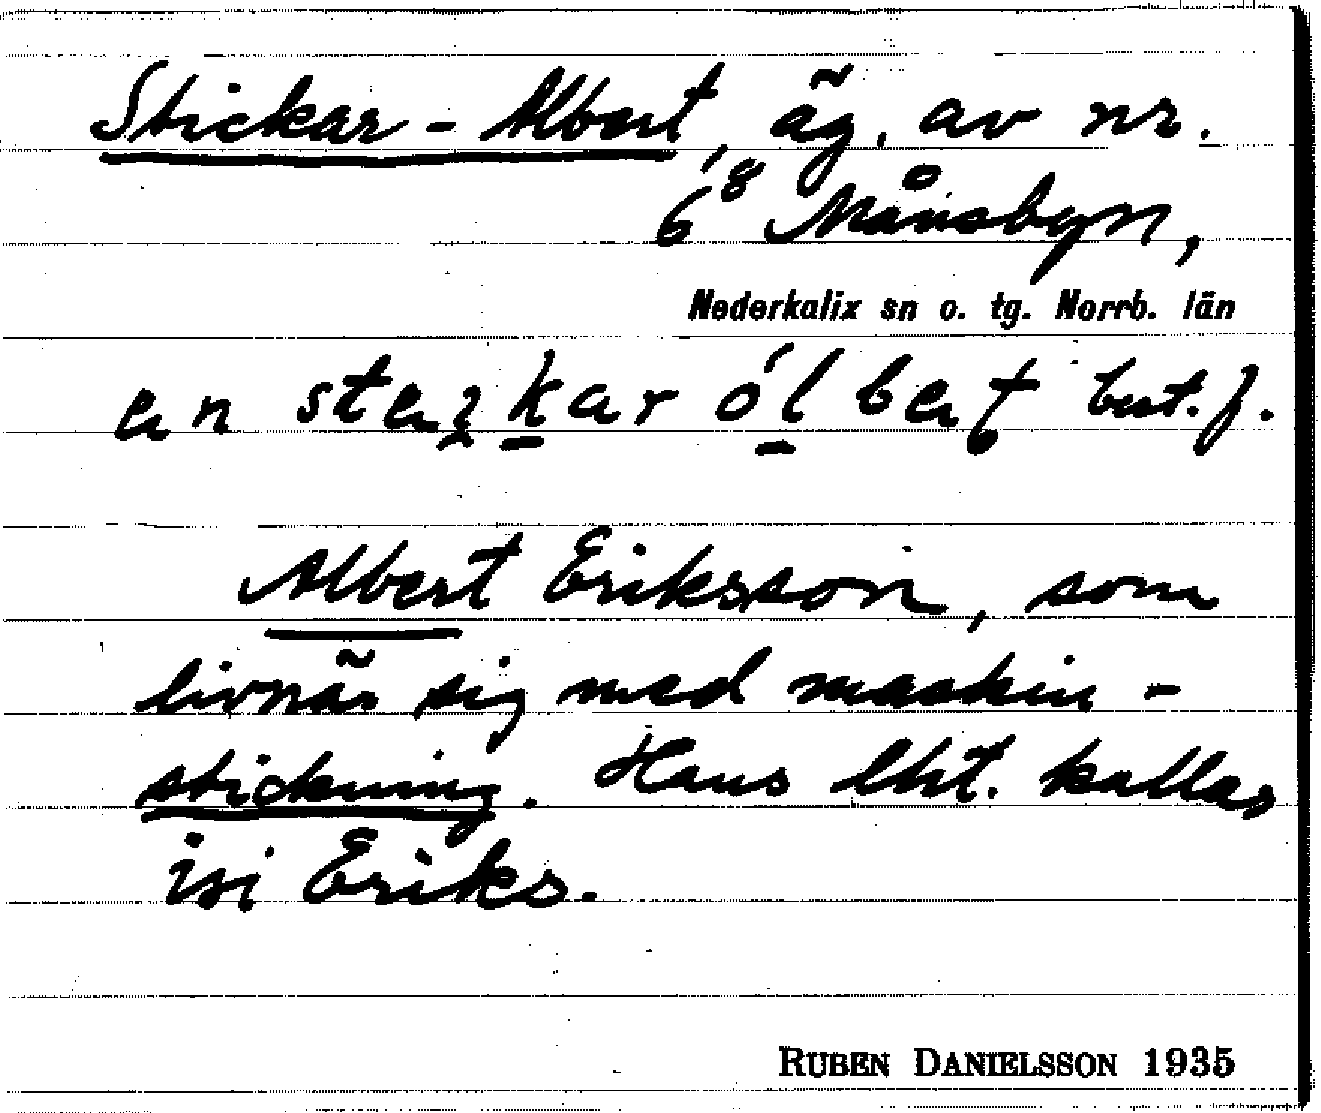 Stickar-Albert, äg. av nr.
6⁸ Månsbyn,
Nederkalix sn o. tg. Norrb. län
best. f.
Albert Eriksson, som
livnär sig med maskin-
stickning. Hans lht. kallas
isi Eriks.
RUBEN DANIELSSON 1935